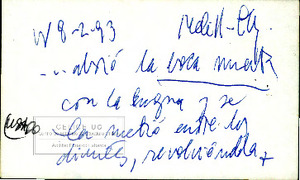 8-2-93
... abrió la boca muerta
con la lengua y se
la metió entre los
dientes, revolviéndola